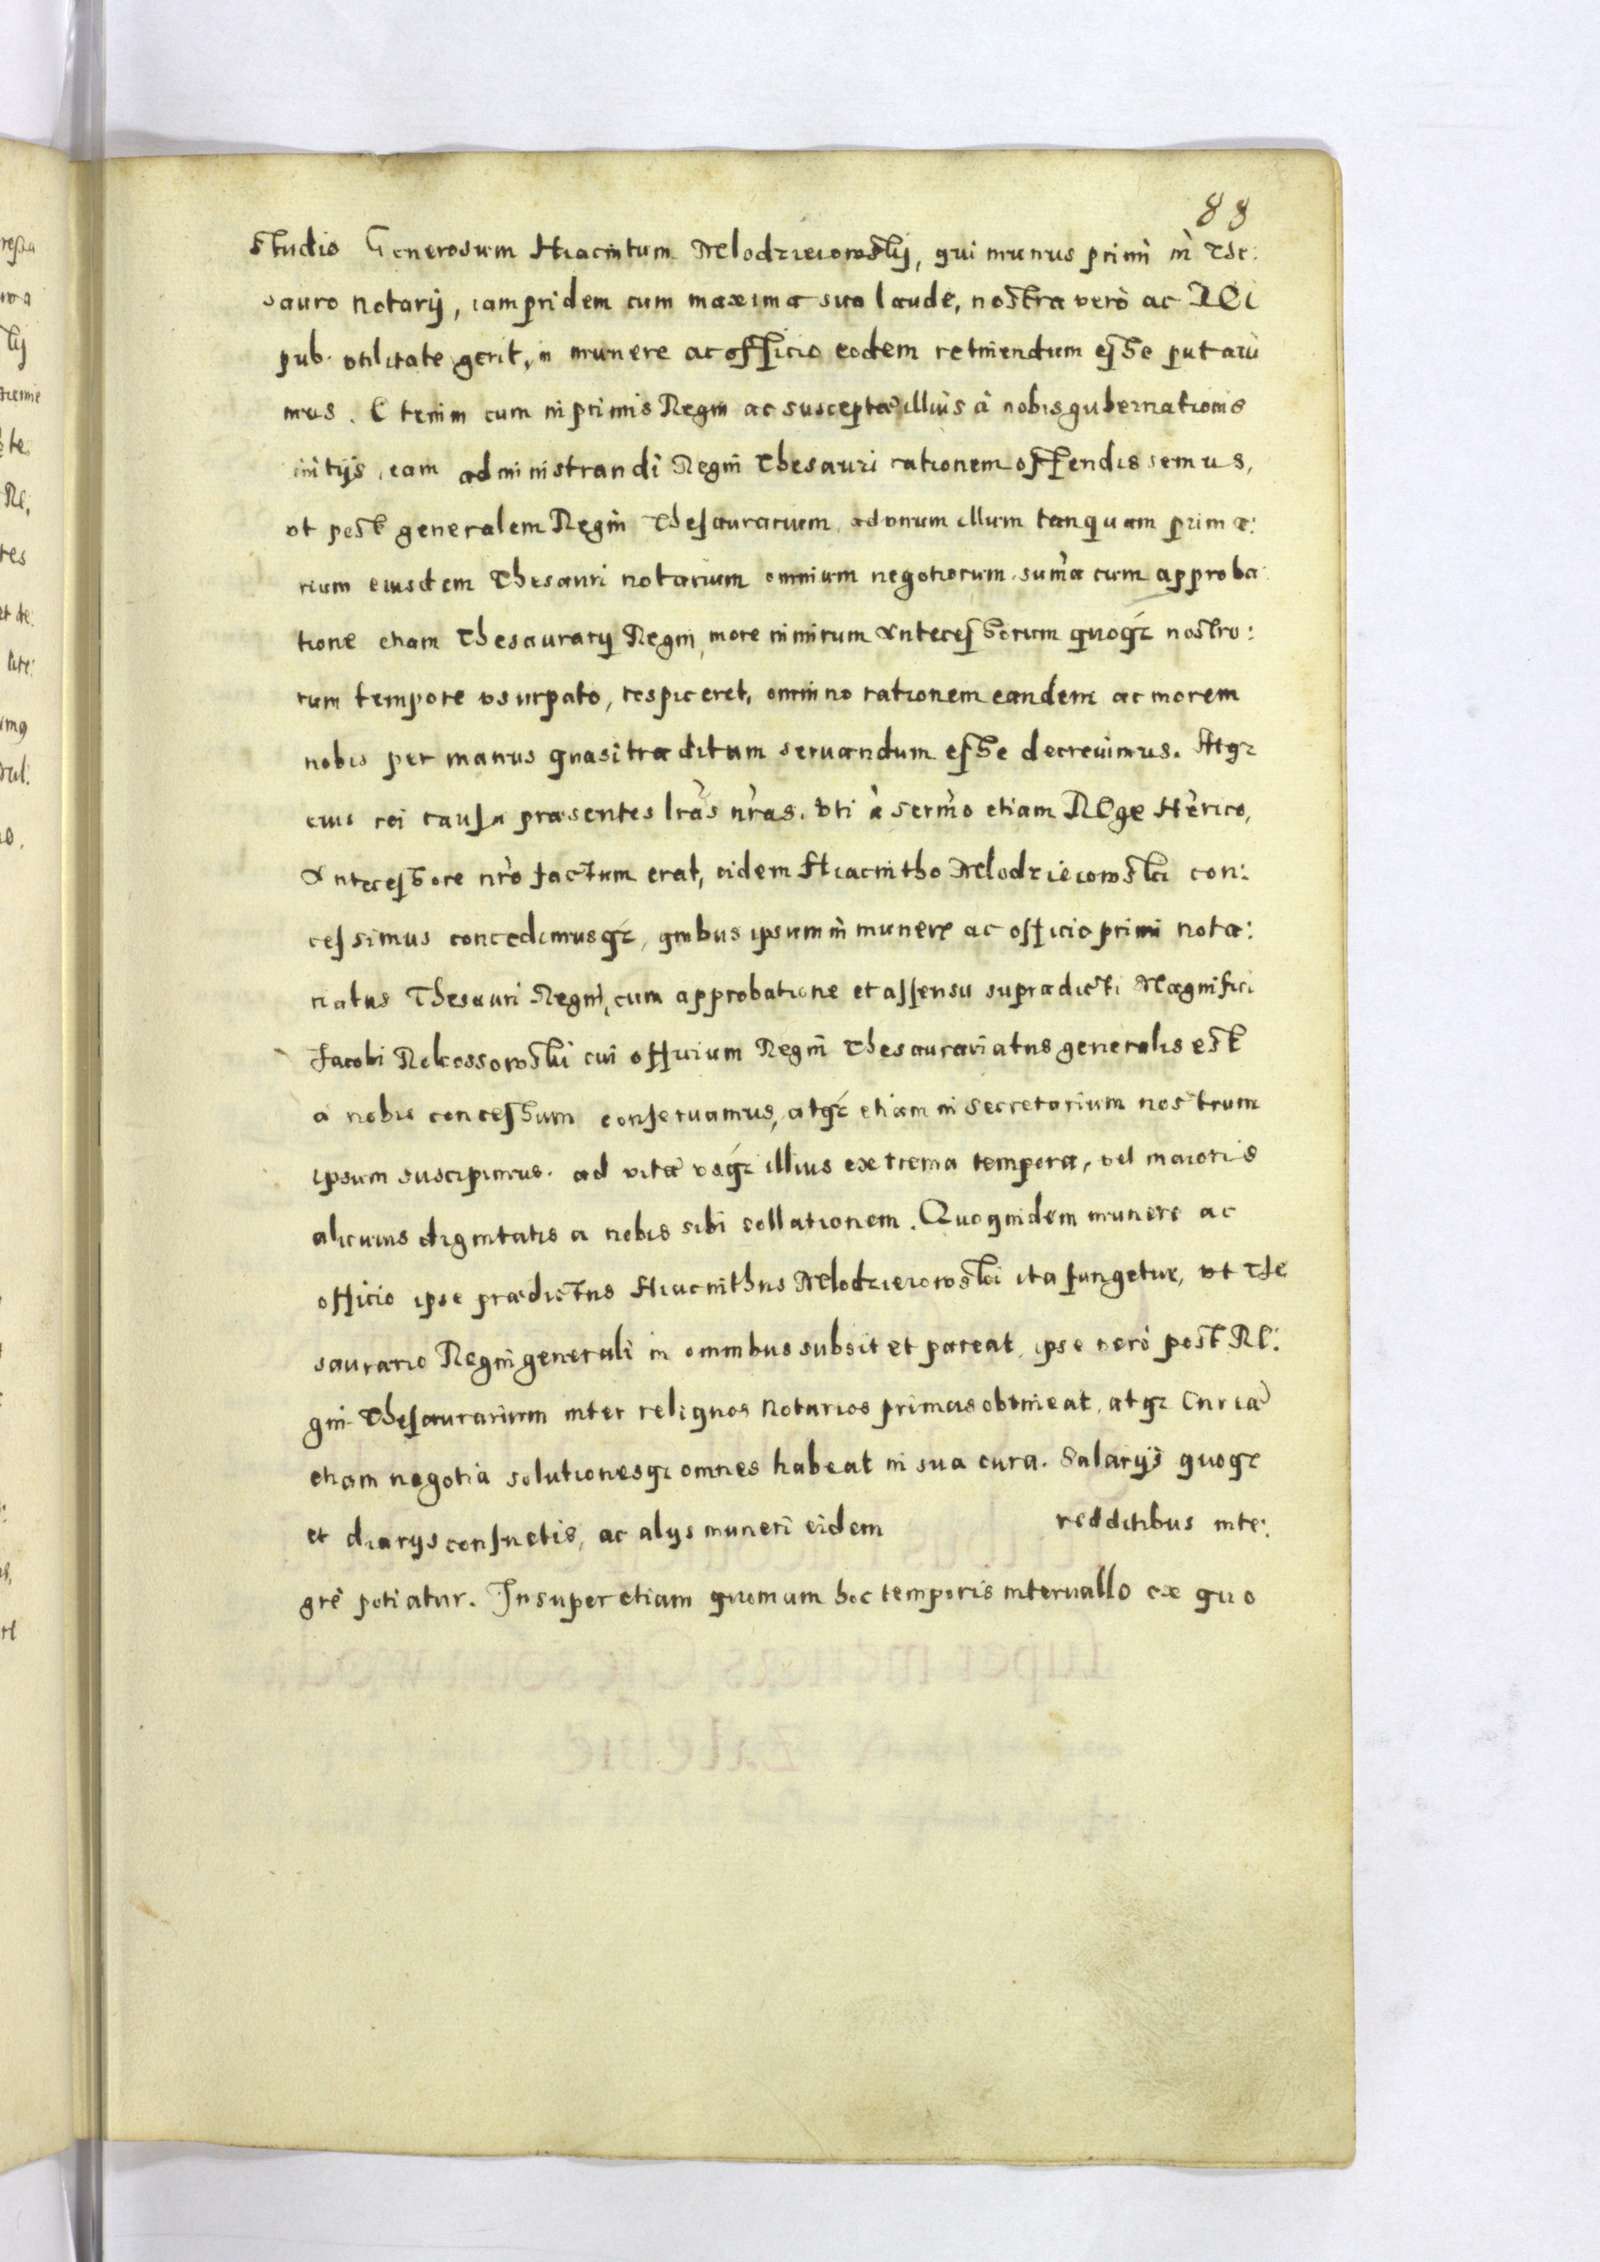 88
studio Generosum Hiacintum Mlodzieiowskij, qui munus primi in The:
sauro notarij, iampridem cum maxima sua laude, nostra verò ac REi
pub. vtilitate gerit, in munere ac officio eodem retinendum esse putaui
mus. Etenim cum in primis Regni ac susceptae illius à nobis gubernationis
initijs, eam administrandi Regni Thesauri rationem offendissemus,
vt post generalem Regni Thesaurarium, ad vnum illum tanquam prima:
rium eiusdem Thesauri notarium omnium negotiorum, suma cum approba
tione etiam Thesaurarij Regni, more nimirum Antecessorum quoqz nostro:
rum tempore vsurpato, respiceret, omnino rationem eandem ac morem
nobis per manus quasi traditum seruandum esse decreuimus. Atqz
eius rei causa praesentes lras nras, vti à sermo etiam REge Herico,
Antecessore nro factum erat, eidem Hiacintho Mlodzieiowski con:
cessimus concedimusqz, quibus ipsum in munere ac officio primi nota:
riatus Thesauri Regni, cum approbatione et assensu supradicti Magnifici
Jacobi Rokossowski cui officium Regni Thesaurariatus generalis est
a nobis concessum conseruamus, atqz etiam in secretarium nostrum
ipsum suscipimus. ad vitae vsqz illius extrema tempora, vel maioris
alicuius dignitatis a nobis sibi collationem. Quoquidem munere ac
officio ipse praedictus Hiacinthus Mlodzieiowski ita fungetur, vt The
saurario Regni generali in omnibus subsit et pareat, ipse verò post RE:
gni Thesaurarium inter reliquos Notarios primas obtineat, atqz Curiae
etiam negotia solutionesqz omnes habeat in sua cura. Salarijs quoqz
et diarijs consuetis, ac alijs muneri eidem redditibus inte:
grè potiatur. Insuper etiam quoniam hoc temporis interuallo ex quo